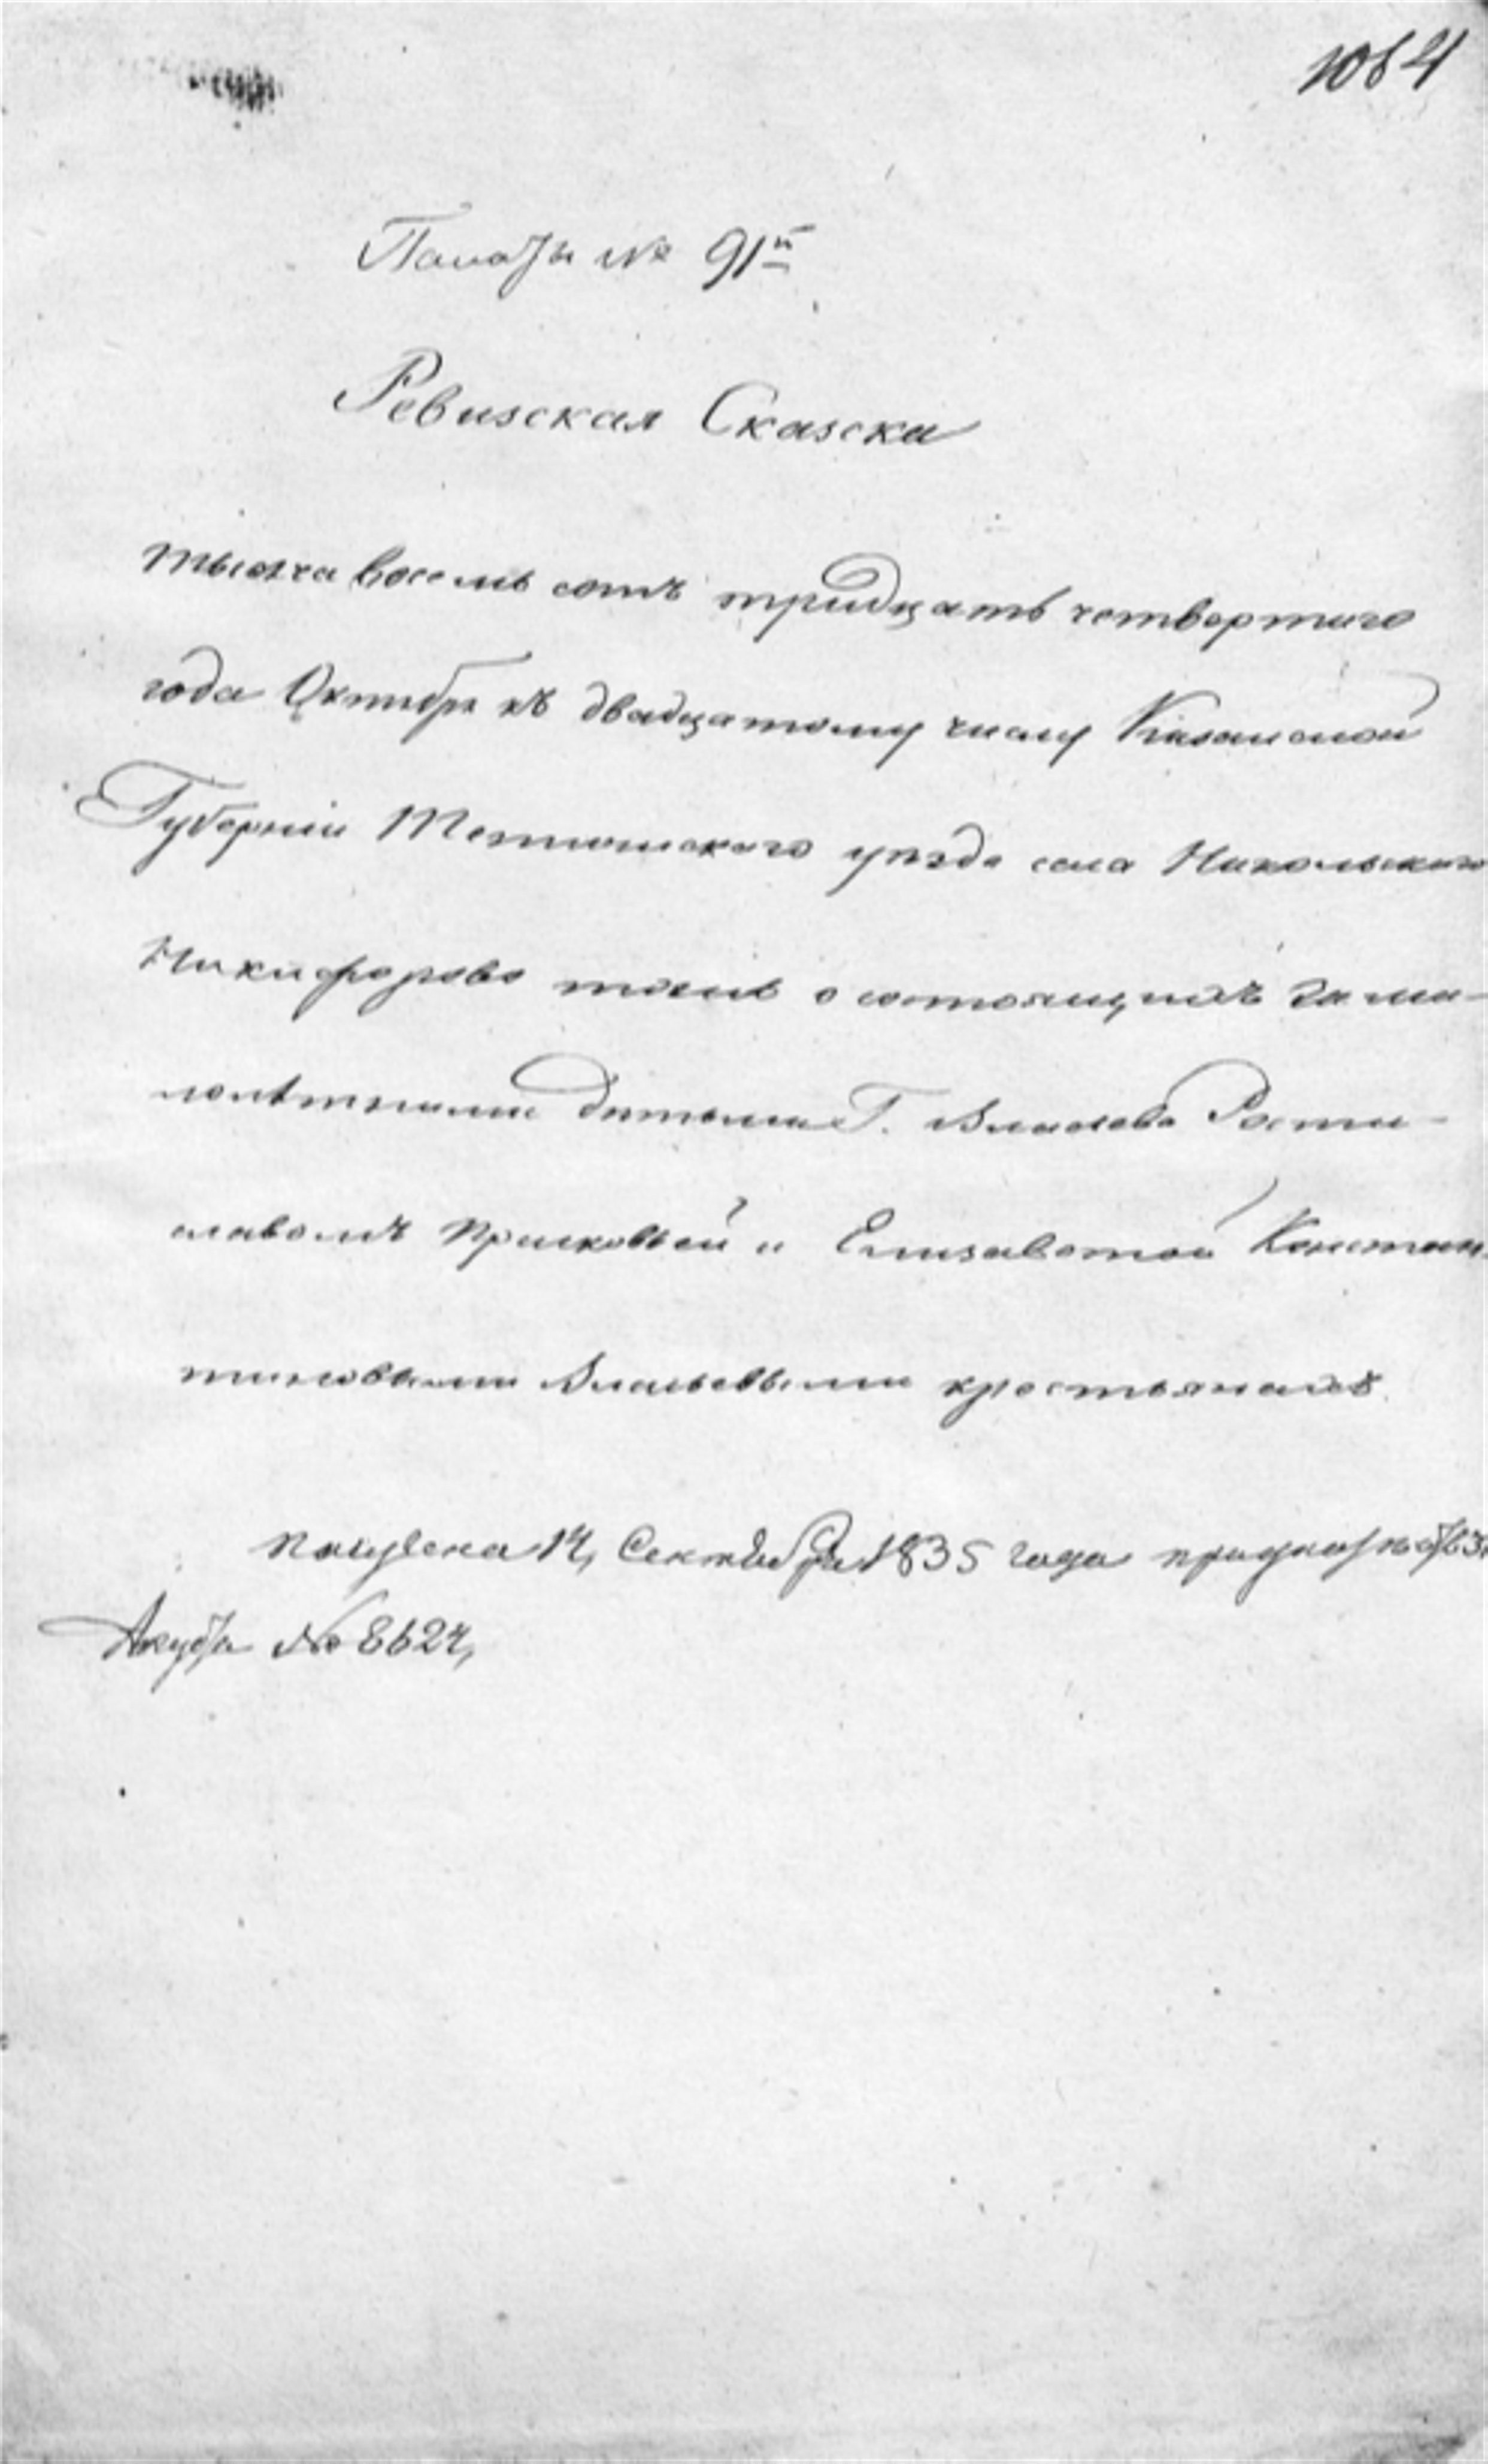 1064
Палаты № 91й
Ревизская Сказска
тысяча восемь сотъ тридцать четвертаго
года Октября къ двадцатому числу Казанской
Губернии Тетюшскаго уѣзда села Никольскаго
Никифорово тожъ о состоящихъ за ма-
лолѣтними дѣтьми Г. Власова Рости-
славомъ Прасковьей и Елизаветой Констан-
тиновыми крестьянахъ
Получена 14, Сентября 1835 года при
№ 8624,